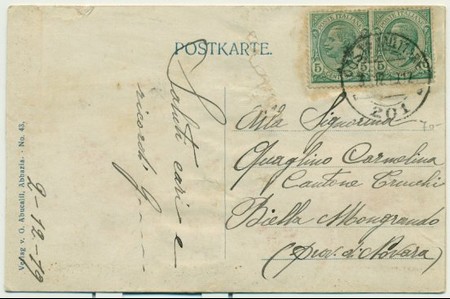 POSTKARTE.
POSTE ITALIANE
POSTE ITALIANE
5
5
201
Saluti cari e
ricordi G
2-12-19
Verlag v. G. Abucalil, Abbazia. - No. 43.
Alla Signorina
Quaglino Carmelina
Cantone Truchi
Biella Mongrando
(prov. di Novara)
70-